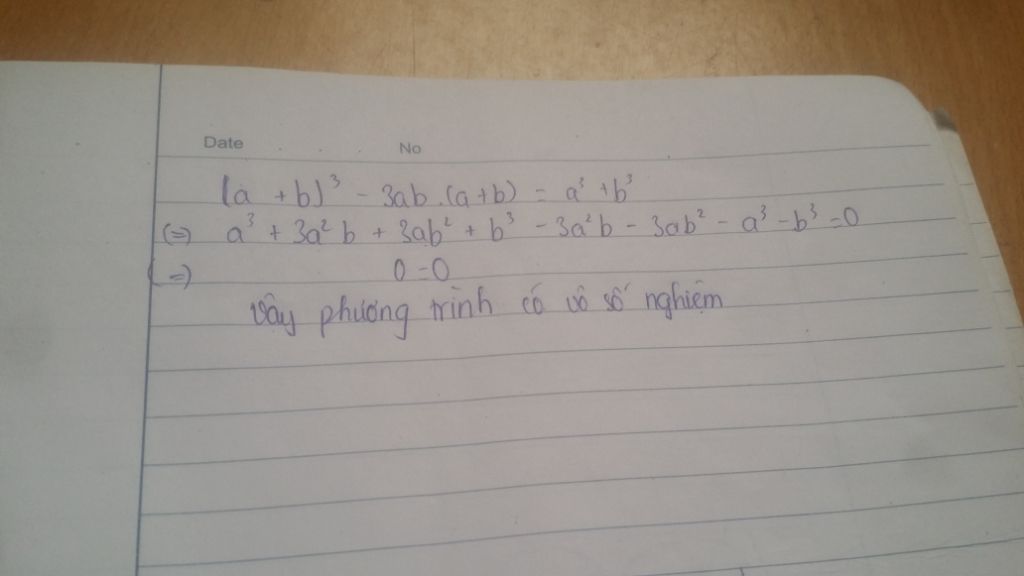 Date . . . No
(a + b)³ - 3ab.(a+b) = a³ + b³
(=) a³ + 3a²b + 3ab² + b³ - 3a²b - 3ab² - a³ - b³ = 0
(=) 0 = 0
Vậy phương trình có vô số nghiệm